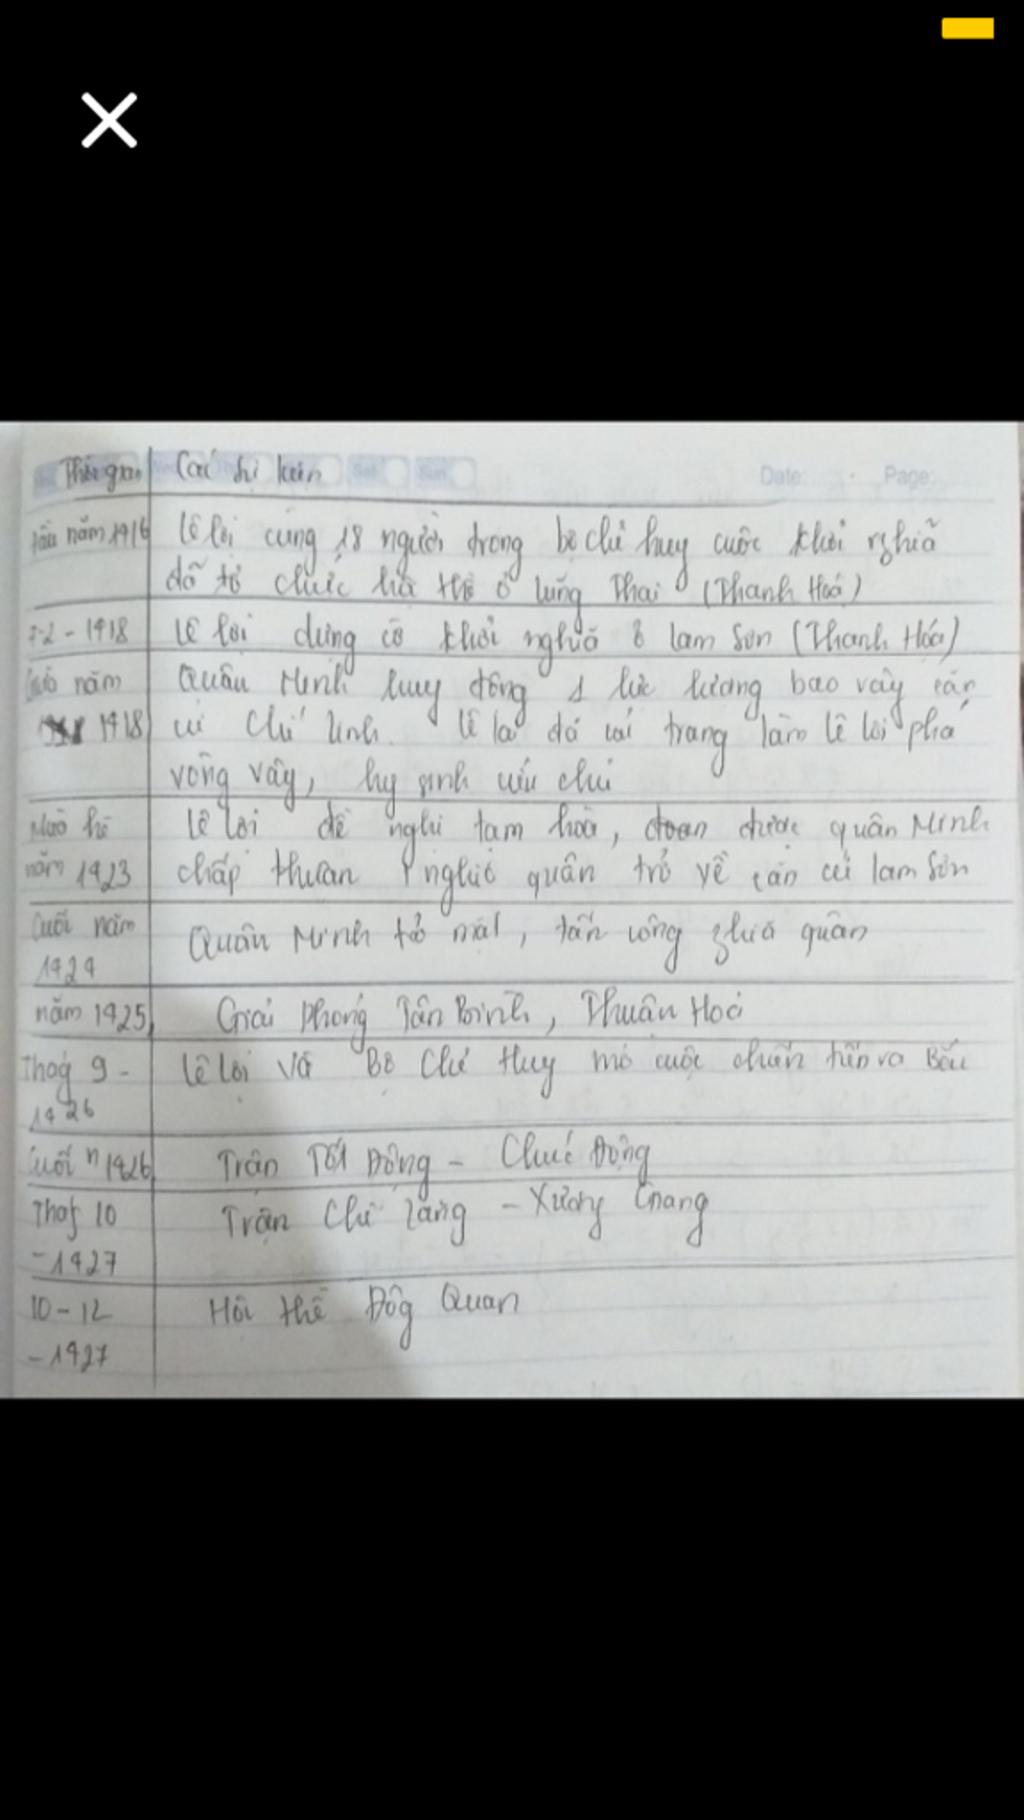 Thời gian Các sự kiện
Date: Page:
Đầu năm 1416 Lê lợi cùng 18 người trong bộ chỉ huy cuộc khởi nghĩa
đã tổ chức hội thề ở Lũng Thai (Thanh Hoá)
7-2-1418 Lê lợi dựng cờ khởi nghĩa ở lam Sơn (Thanh Hóa)
năm Quân Minh huy động 1 lực lượng bao vây căn
1418 cứ Chí linh. Lê lai đó cải trang làm lê lợi phá
vòng vây, hy sinh cứu chủ
Mùa hè Lê Lợi đề nghị tạm hoà, được quân Minh
năm 1423 chấp thuận nghĩa quân trở về căn cứ lam Sơn
Cuối năm Quân Minh trở mặt, tấn công nghĩa quân
1424
năm 1425, Giải phóng Tân Bình, Thuận Hoá
Thág 9 - Lê Lợi và Bộ Chỉ Huy mở cuộc tiến ra Bắc
1426
Cuối n 1426 Trận Tốt Động - Chúc Động
Thág 10 Trận Chi Lăng - Xương Giang
-1427
10-12 Hội thề Đôg Quan
-1427